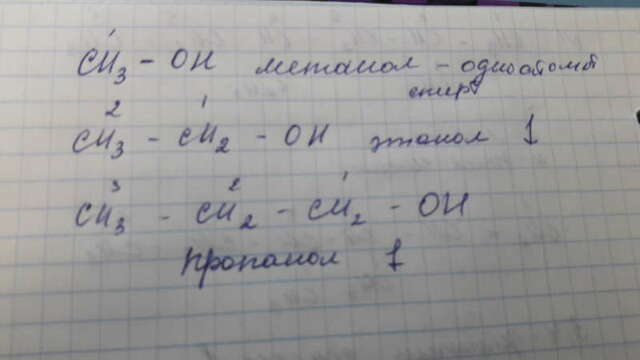 1
CH3 - OH метанол - одноатомн
спирт
2 1
CH3 - CH2 - OH этанол 1
3 2 1
CH3 - CH2 - CH2 - OH
пропанол 1